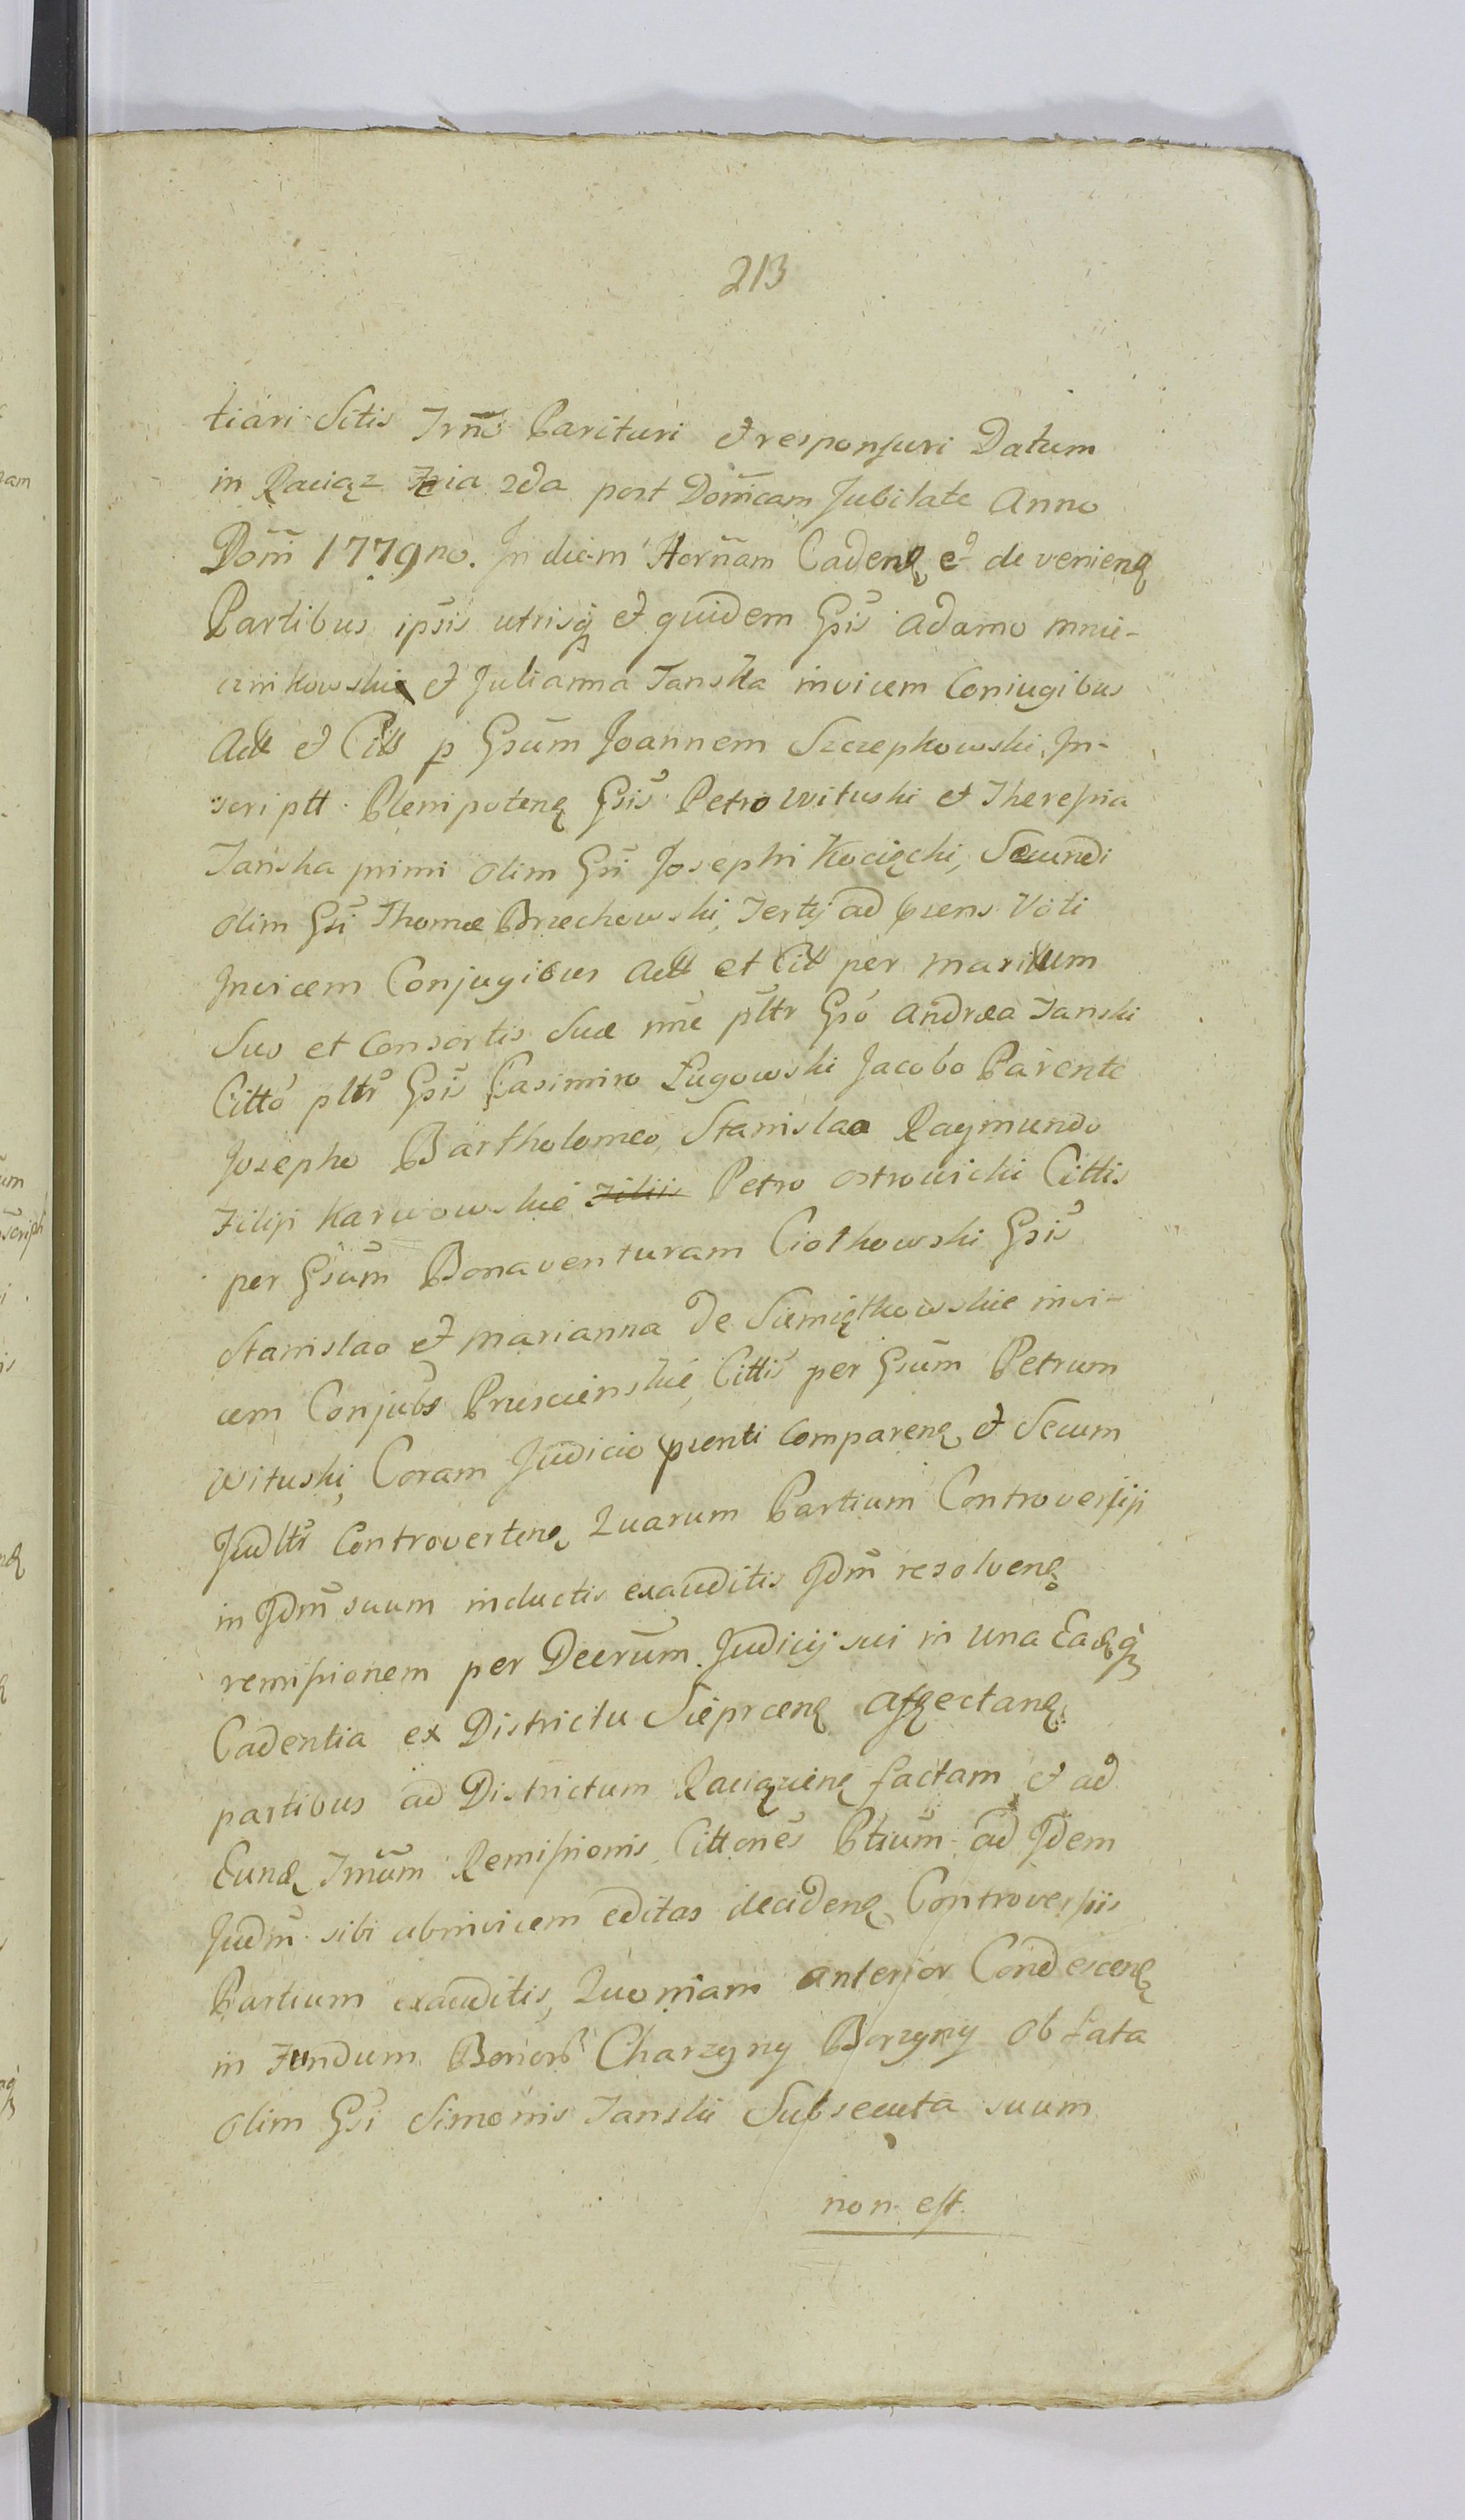 213
tiari Sitis Trnō Parituri et responsuri Datum
in Raciąz Fria 2da post Domīcam Jubilate Anno
Domī 1779no. In diem Hornam Cadenę et de venienę
Partibus ipsis utrisq̨ et quidem Gsīs Adamo Mnie-
cznikowskie et Julianna Tanska invicem Coniugibus
Actt et Citt p Gsūm Joannem Szczepkowski In-
scriptt Plenipotenę Gsīs Petro Wituski et Theresia
Tanska primi olim Gsī Josephi Kocięcki, Secundi
olim Gsī Thomæ Brzechowski, Tertij ad prens Voti
Invicem Conjugibus Actt et Citt per Maritum
Suo et Consortis Suæ nne pltr Gsō Andræa Tanski
Citto pltr Gsīs Casimiro Ługowski Jacobo Parente
Josepho Bartholomeo, Stanislao Raymundo
Filiji Karwowskie Filiis Petro Ostrowicki Cittis
per Gsūm Bonaventuram Ciołkowski Gsīs
Stanislao et Marianna De Siemiątkowskie invi-
cem Conjubs Pruscienskie, Cittis per Gsūm Petrum
Wituski, Coram Judicio prenti Comparenę et Secum
Judltr Controvertenę Quarum Partium Controversiji
in Jdm̄ suum inductis exauditis Jdm̄ resolvenę
remissionem per Decrūm Judicij sui in una Eadęq̨
Cadentia ex Districtu Sieprcenę affectanę
partibus ad Districtum Raciązienę factam et ad
Eunę Tmūm Remissionis Cittonēs Ptiūm ad Jdem
Judm̄ sibi abinvicem editas decidenę Controversiis
Partium exauditis, Quoniam anterior Condescenę
in Fundum Bonorb Charzyny Borzyny ob fata
olim Gsī Simonis Tanski Subsecuta suum
non est